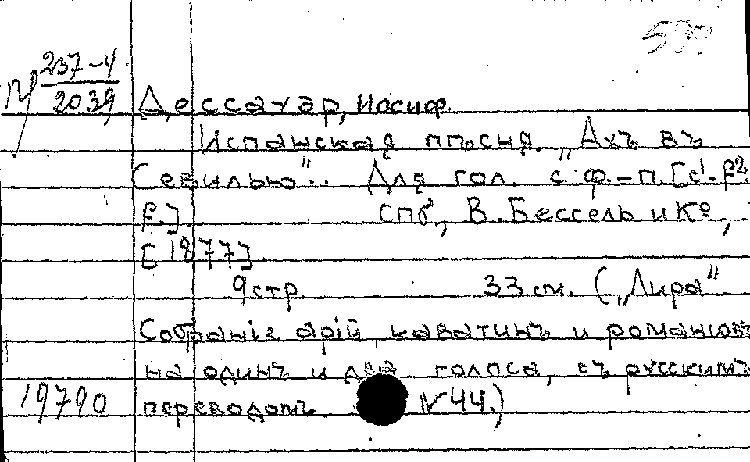 М 237-4
2039
Дессауэр, Иосиф.
Испанская пѣсня. „Ахъ въ
Севилью“.. Для гол. с ф.-п. [c¹-f²
F.] СПб, В. Бессель и Ко,
[1877].
9 стр. 33 см. („Лира“
Собраніе арій каватинъ и романсовъ
на одинъ и два голоса, съ русскимъ
19790 переводомъ. N 44.)